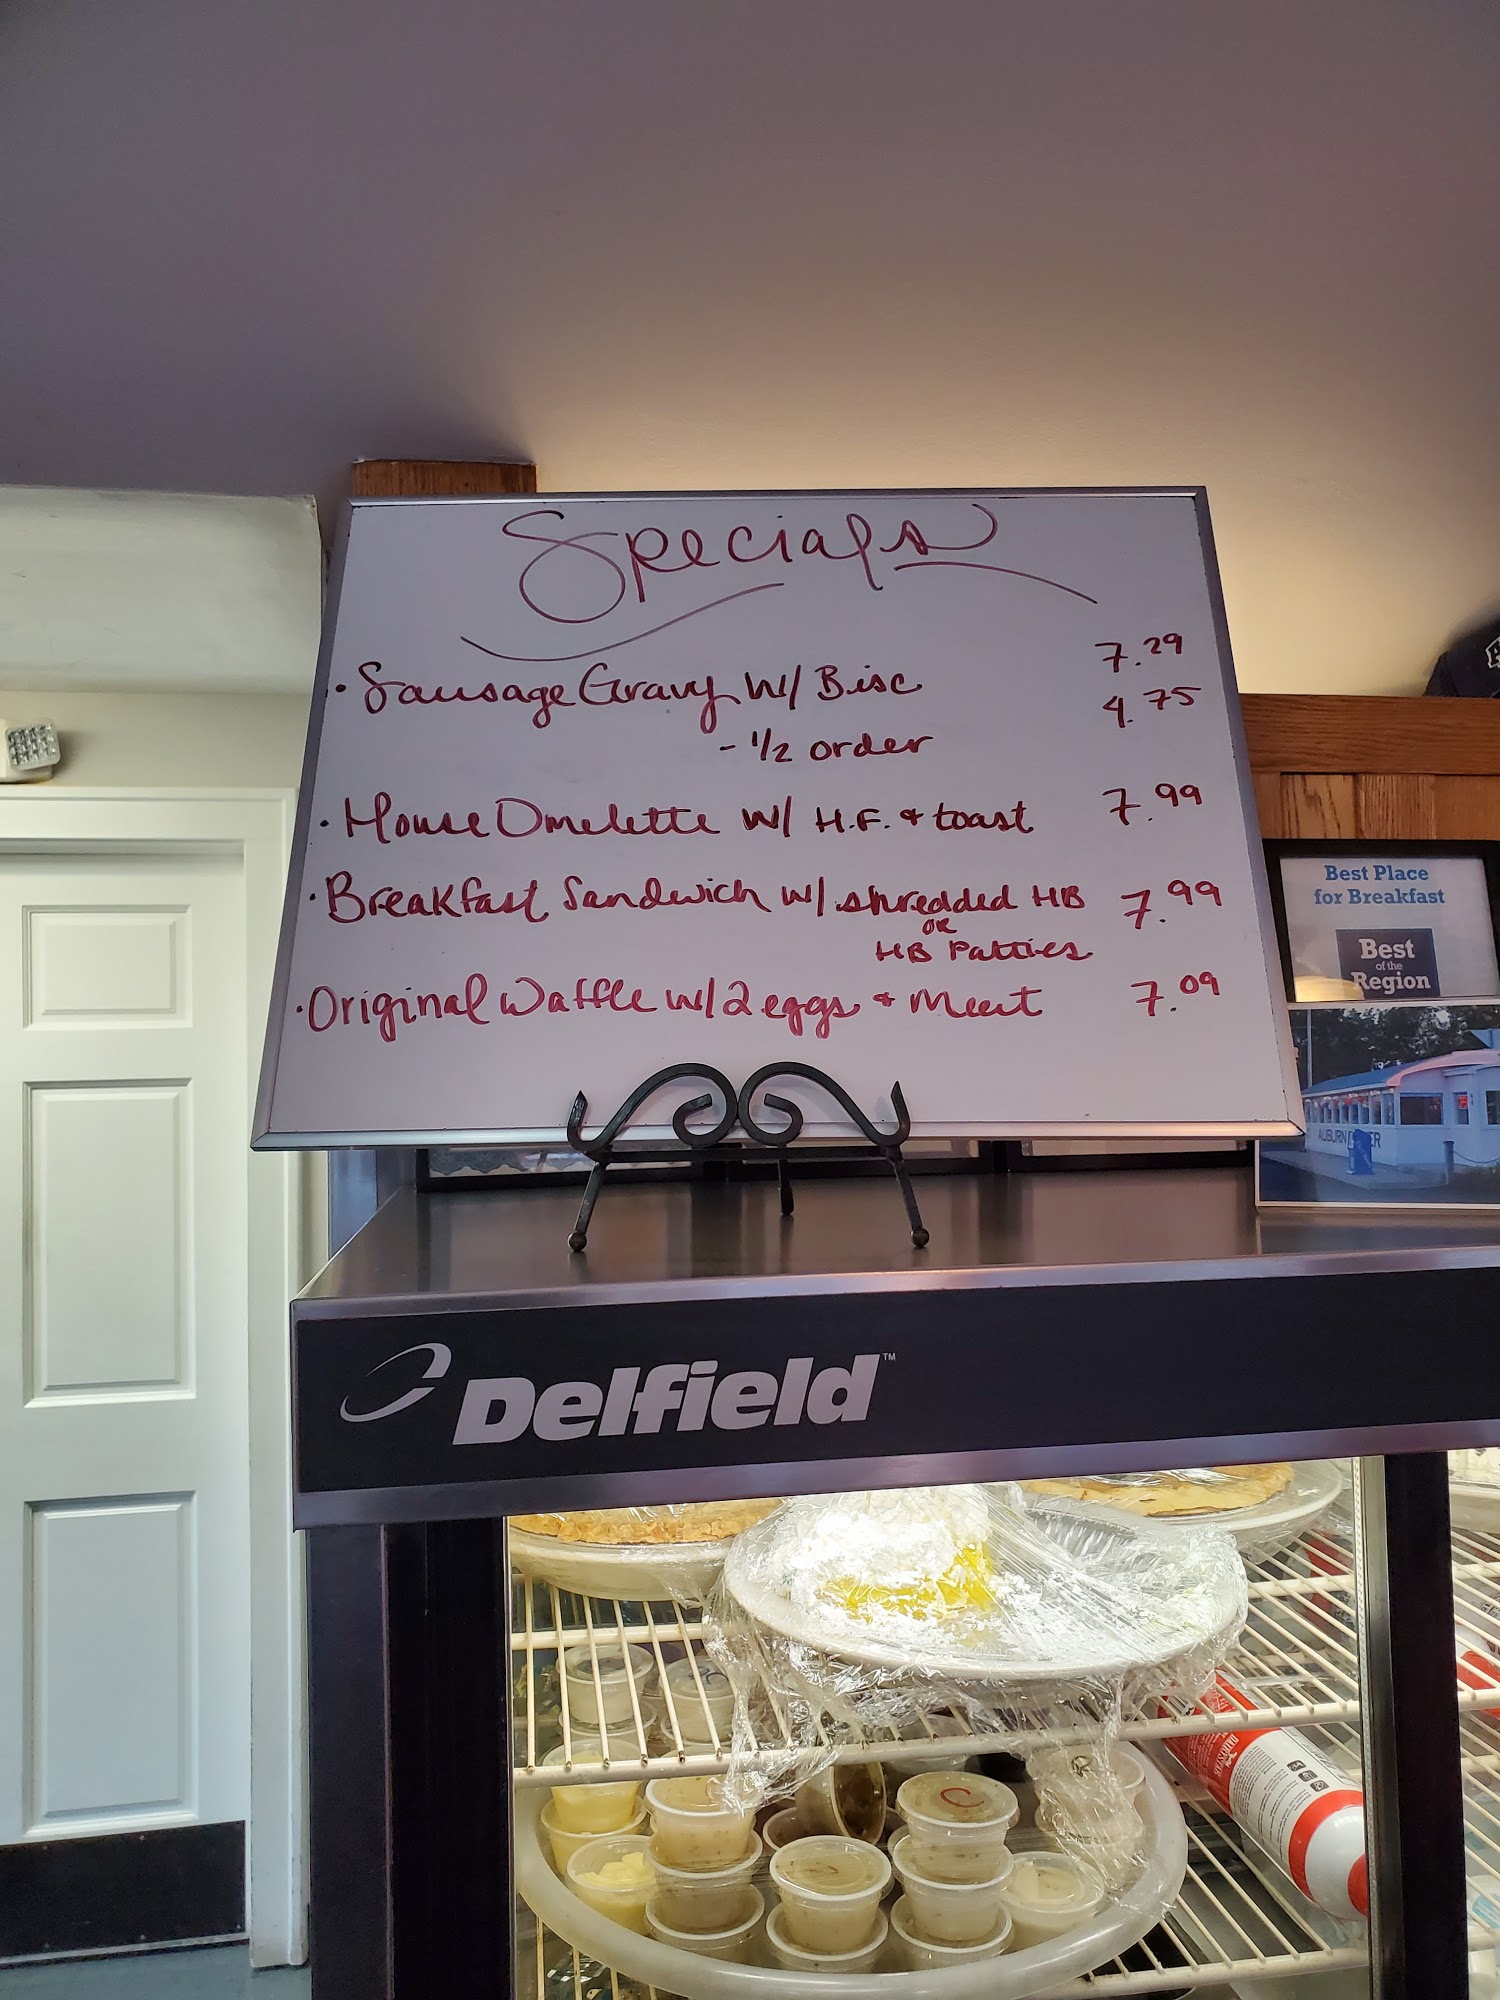 Specials
· Sausage Gravy w/ Bisc 7.29
- 1/2 order 4.75
· House Omelette w/ H.F. + toast 7.99
· Breakfast Sandwich w/ shredded HB 7.99
OR
HB Patties
· Original Waffle w/ 2 eggs + Meat 7.09
Best Place
for Breakfast
Best
of the
Region
AUBURN
Delfield™
C